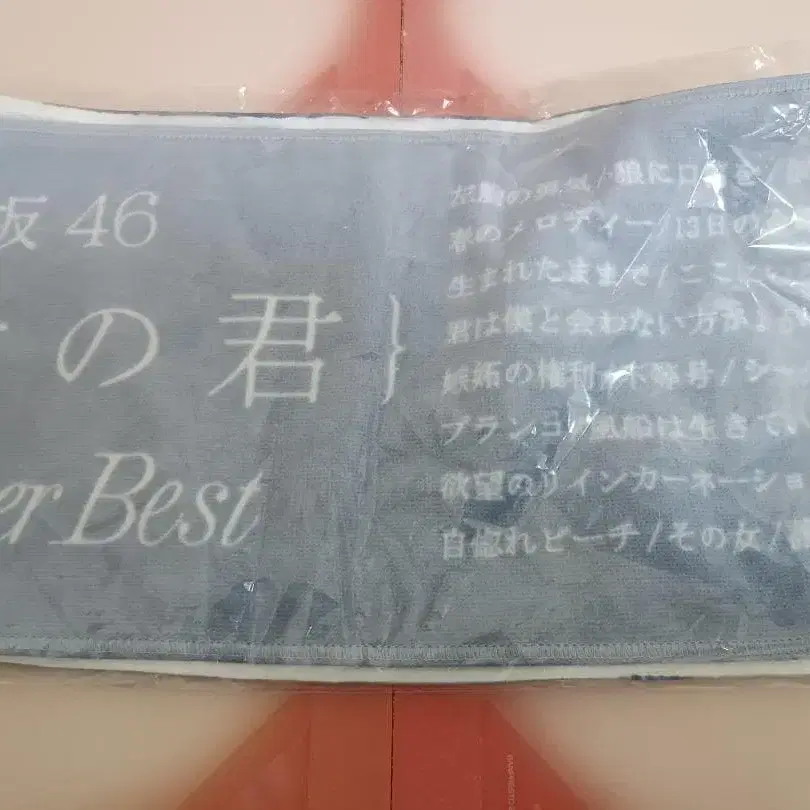 坂 46
の君}
er Best
左胸の勇気/狼に口笛を/
春のメロディー/13日の
生まれたままで/ここにいる
君は僕と会わない方が
嫉妬の権利/不等号/シー
ブランコ/風船は生きてい
欲望のリインカーネーショ
自惚れビーチ/その女/